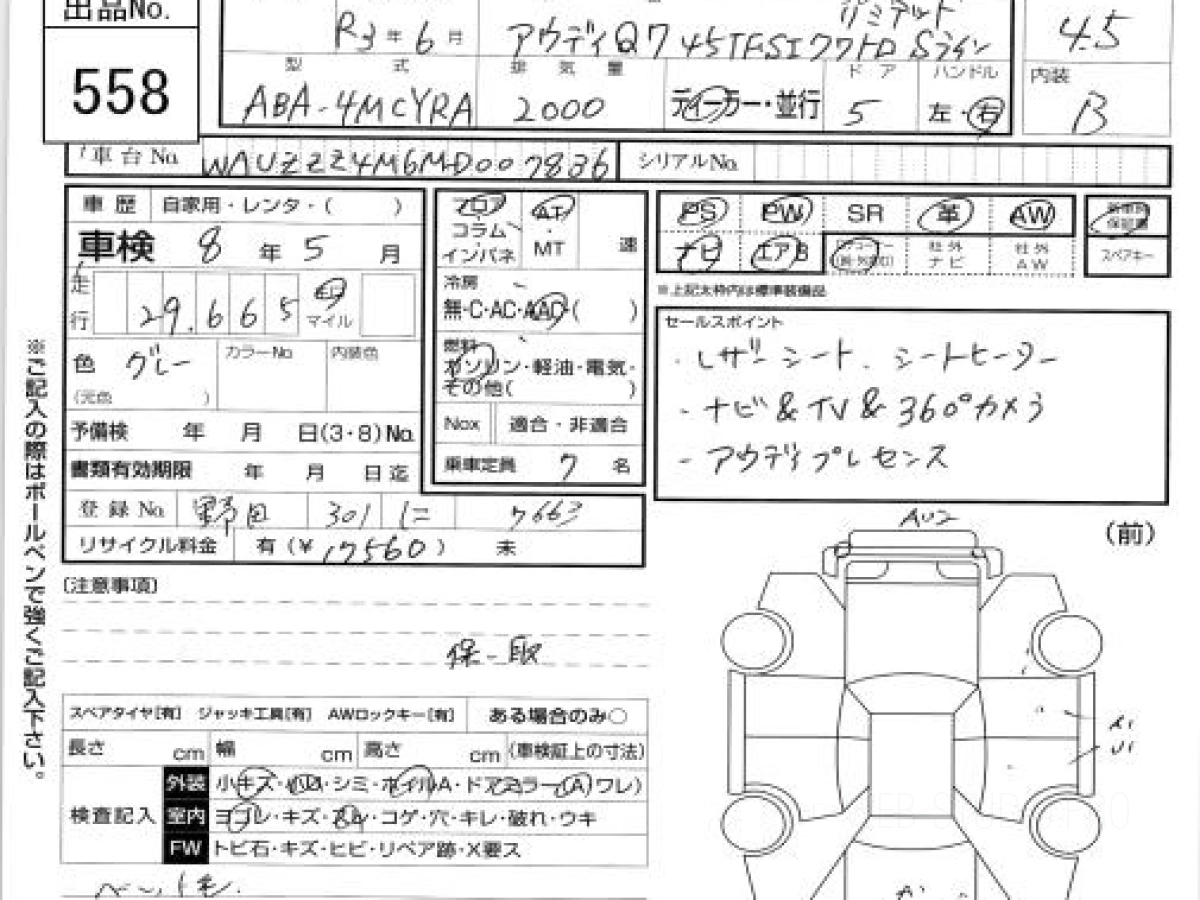 出品No.
558
R3 年 6 月
アウディQ7 45TFSIクワトロ Sライン
リミテッド
4.5
型 式
排 気 量
ドア
ハンドル
内装
ABA-4MCYRA
2000
ディーラー・並行
5
左・右
B
車台No.
WAUZZZ4M6MD007836
シリアルNo.
車歴 自家用・レンタ・( )
車検 8 年 5 月
走行 29,665 マイル
色 グレー
カラーNo.
内装色
(元色 )
予備検 年 月 日(3・8)No.
書類有効期限 年 月 日迄
登録No. 野田 301 に 7663
リサイクル料金 有(¥17560) 未
フロア
コラム
インパネ
AT
・
MT
速
冷房
無・C・AC・AAC( )
燃料
ガソリン・軽油・電気・
その他( )
Nox 適合・非適合
乗車定員 7 名
PS PW SR 革 AW
ナビ エアB
社外ナビ
社外AW
保証書
スペアキー
※上記太枠内は標準装備品
セールスポイント
・レザーシート、シートヒーター
・ナビ&TV&360°カメラ
・アウディプレセンス
〔注意事項〕
保-取
スペアタイヤ[有] ジャッキ工具[有] AWロックキー[有] ある場合のみ○
長さ cm 幅 cm 高さ cm (車検証上の寸法)
検査記入
外装 小キズ・小凹・シミ・ホイルA・ドアミラー(A)ワレ)
室内 ヨゴレ・キズ・スレ・コゲ・穴・キレ・破れ・ウキ
FW トビ石・キズ・ヒビ・リペア跡・X要ス
ペット毛.
※ご記入の際はボールペンで強くご記入下さい。
(前)
AU2
A1
U1